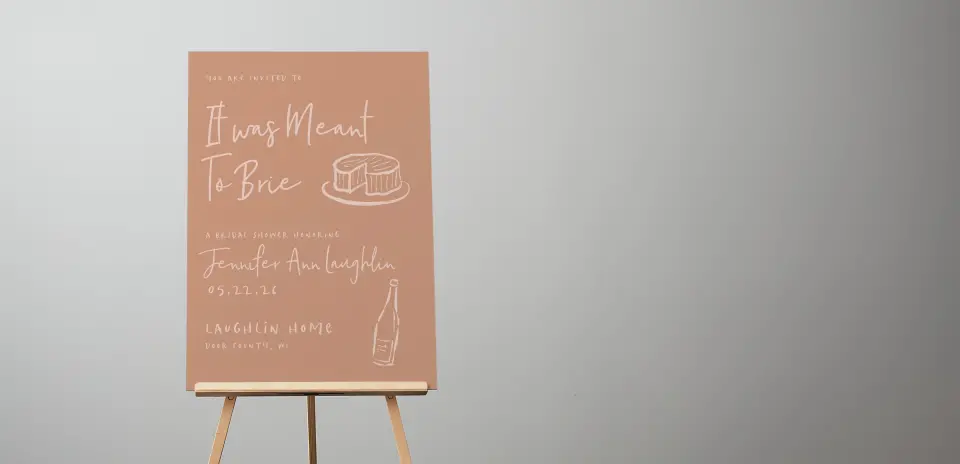 YOU ARE INVITED TO
It was Meant
To Brie
A BRIDAL SHOWER HONORING
Jennifer Ann Laughlin
05.22.26
LAUGHLIN HOME
DOOR COUNTY, WI